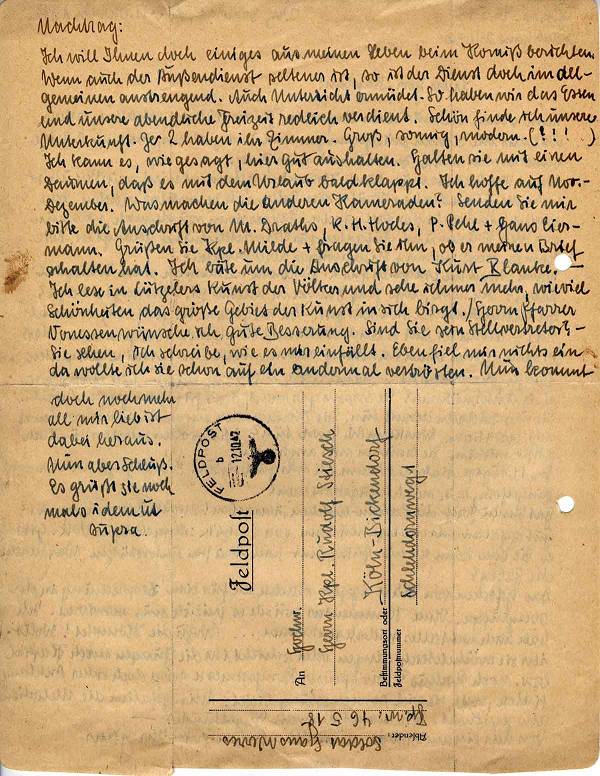 Nachtrag:
Ich will Ihnen doch einiges aus meinen Leben beim Komiß berichten.
Wenn auch der Außendienst seltener ist, so ist der Dienst doch im all-
gemeinen anstrengend. Auch Unterricht ermüdet. So haben wir das Essen
und unsere abendliche Freizeit redlich verdient. Schön finde ich unsere
Unterkunft. Je 2 haben ihr Zimmer. Groß, sonnig, modern. (!!!)
Ich kann es, wie gesagt, hier gut aushalten. Halten sie mit einen
Daumen, daß es mit dem Urlaub bald klappt. Ich hoffe auf Nov.-
Dezember. Was machen die anderen Kameraden? Senden Sie mir
bitte die Anschrift von M. Draths, K. H. Hodes, P. Pehl + Hans
mann. Grüßen Sie Kpl. Milde + fragen Sie ihn, ob er meinen Brief
erhalten hat. Ich bitte um die Anschrift von Kurt Blanke. –
Ich lese in Lützelers Kunst der Völker und sehe immer mehr, wieviel
Schönheiten das große Gebiet der Kunst in sich birgt. / Herrn Pfarrer
Vonessen wünsche ich gute Besserung. Sind Sie sein Stellvertreter? –
Sie sehen, ich schreibe, wie es mir einfällt. Eben fiel mir nichts ein
da wollte ich sie schon auf ein andermal vertrösten. Nun kommt
doch noch mehr
all mir lieb ist
dabei heraus.
Nun aber Schluß.
Es grüßt sie noch
mals idem ut
supra.
FELDPOST
b
12.10.42
Feldpost
An
Hochw.
Herrn Kpl. Rudolf
Köln-Bickendorf
Bestimmungsort oder
Feldpostnummer
Absender:
Soldat Hans
46518